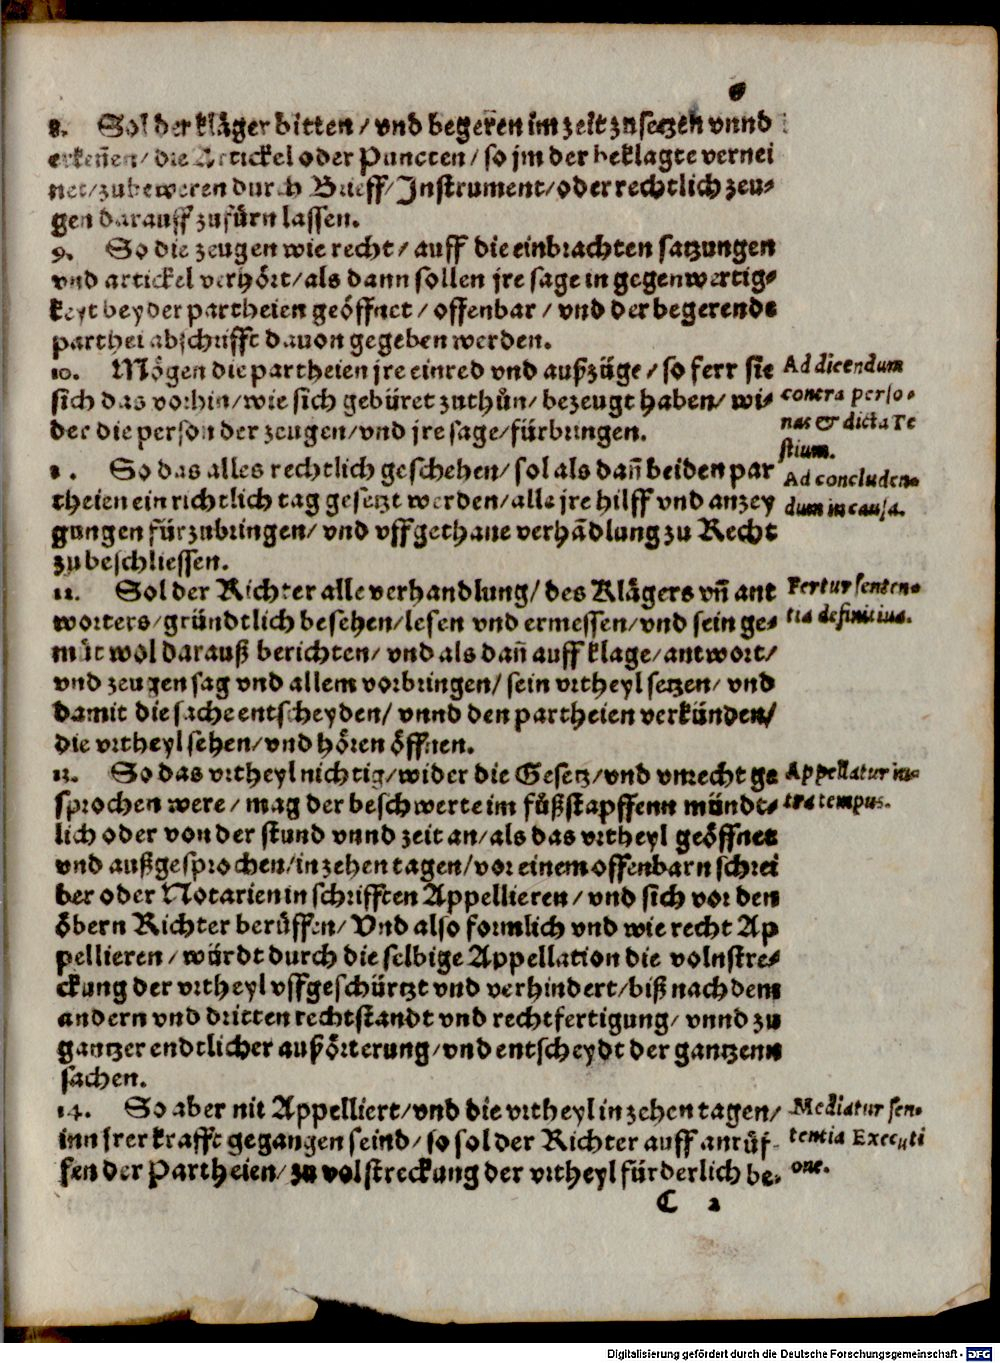 8. Sol der kläger bitten / vnd begeren im zeit zusetzen vnnd
erkeñen / die Artickel oder Puncten / so jm der beklagte vernei
net / zubeweren durch Brieff / Instrument / oder rechtlich zeu-
gen darauff zufürn lassen.
9. So die zeugen wie recht / auff die einbrachten satzungen
vnd artickel verhört / als dann sollen jre sage in gegenwertig-
keyt beyder partheien geöffnet / offenbar / vnd der begerende
parthei abschrifft dauon gegeben werden.
10. Mögen die partheien jre einred vnd außzüge / so ferr sie
sich das vorhin / wie sich gebüret zuthůn / bezeugt haben / wi-
der die person der zeugen / vnd jre sage / fürbringen.
Ad dicendum
contra perso-
nas & dicta Te
stium.
11. So das alles rechtlich geschehen / sol als dañ beiden par
theien ein richtlich tag gesetzt werden / alle jre hilff vnd anzey
gungen fürzubringen / vnd vff gethane verhãdlung zu Recht
zu beschliessen.
Ad concluden-
dum in causa.
12. Sol der Richter alle verhandlung / des Klägers vñ ant
worters / gründtlich besehen / lesen vnd ermessen / vnd sein ge-
müt wol darauß berichten / vnd als dañ auff klage / antwort /
vnd zeugen sag vnd allem vorbringen / sein vrtheyl setzen / vnd
damit die sache entscheyden / vnnd den partheien verkünden /
die vrtheyl sehen / vnd hören öffnen.
Fertur senten-
tia definitiua.
13. So das vrtheyl nichtig / wider die Gesetz / vnd vnrecht ge
sprochen were / mag der beschwerte im fůßstapffenn mündt-
lich oder von der stund vnnd zeit an / als das vrtheyl geöffnet
vnd außgesprochen / in zehen tagen / vor einem offenbarn schrei
ber oder Notarien in schrifften Appellieren / vnd sich vor den
öbern Richter berůffen / Vnd also formlich vnd wie recht Ap
pellieren / würdt durch die selbige Appellation die volnstre-
ckung der vrtheyl vffgeschürtzt vnd verhindert / biß nach dem
andern vnd dritten rechtstandt vnd rechtfertigung / vnnd zu
gantzer endtlicher außörterung / vnd entscheydt der gantzenn
sachen.
Appellatur in-
tra tempus.
14. So aber nit Appelliert / vnd die vrtheyl in zehen tagen /
inn jrer krafft gegangen seind / so sol der Richter auff anrůf-
fen der Partheien / zu volstreckung der vrtheyl fürderlich be-
Mediatur sen-
tentia Executi
one.
C 2
Digitalisierung gefördert durch die Deutsche Forschungsgemeinschaft - DFG